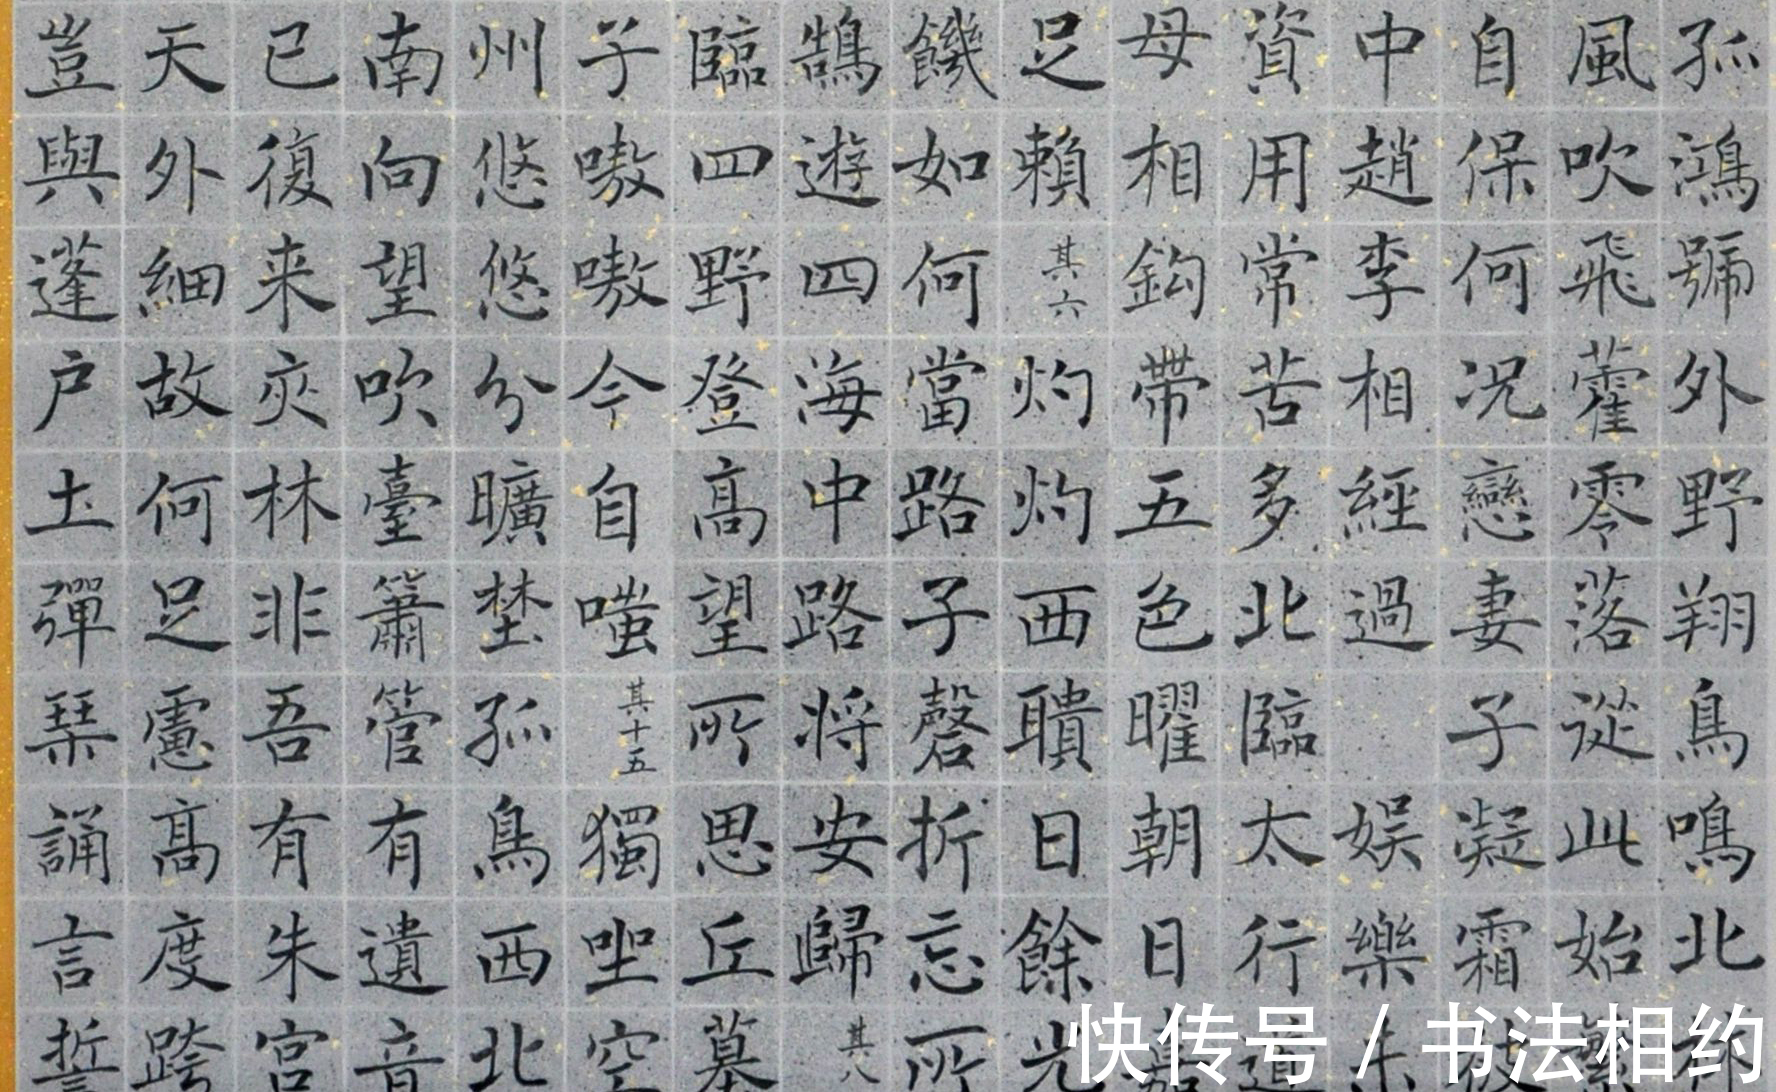 孤鴻號外野翔鳥鳴北
風吹飛藿零落從此始
自保何況戀妻子凝霜
中趙李相經過 娛樂未
資用常苦多北臨太行道
母相鈎帶五色曜朝日嘉
足賴 其六 灼灼西隤日餘光
饑如何當路子磬折忘所
鵠遊四海中路將安歸 其八
臨四野登高望所思丘墓
子噭噭今自嗤 其十五 獨坐空
州悠悠分曠埜孤鳥西北
南向望吹臺簫管有遺音
已復来夾林非吾有朱宮
天外細故何足慮高度跨
豈與蓬戶土彈琹誦言誓
快传号 / 书法相约